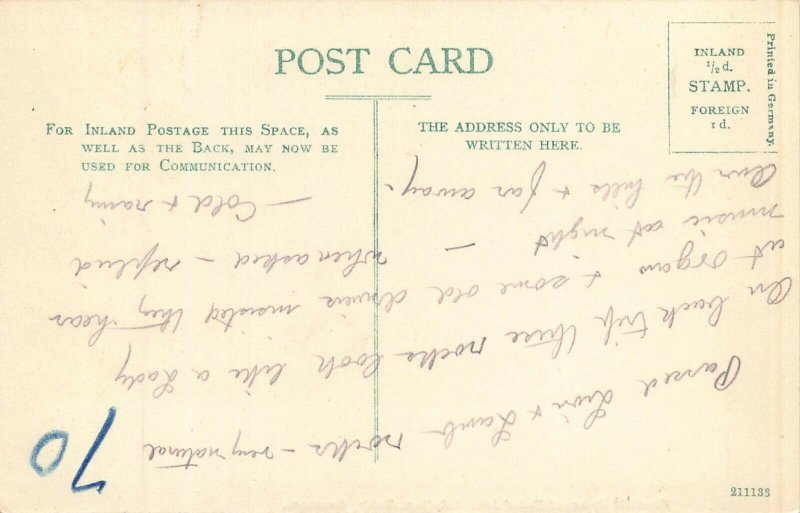 POST CARD
FOR INLAND POSTAGE THIS SPACE, AS
WELL AS THE BACK, MAY NOW BE
USED FOR COMMUNICATION.
THE ADDRESS ONLY TO BE
WRITTEN HERE.
INLAND
1/2 d.
STAMP.
FOREIGN
1 d.
Printed in Germany.
Passed Lion & Lamb rocks - very natural
On back trip three rocks look like a Lady
at organ & some old drivers insisted they hear
music at night - when asked - replied
Over the hills & far away. - Cold & rainy
70
211133